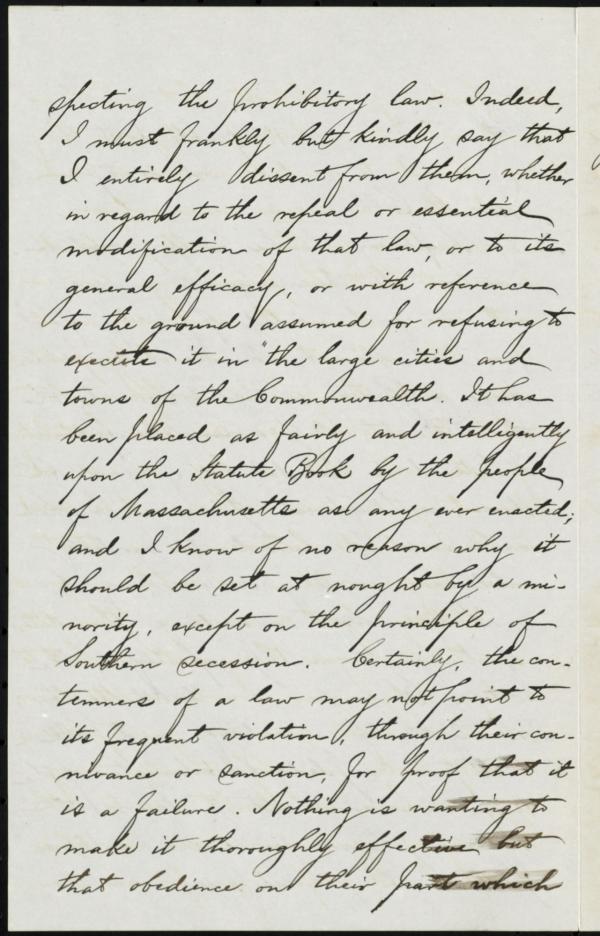 specting the prohibitory law. Indeed,
I must frankly but kindly say that
I entirely dissent from them, whether
in regard to the repeal or essential
modification of that law, or to its
general efficacy, or with reference
to the ground assumed for refusing to
execute it in "the large cities and
towns of the Commonwealth. It has
been placed as fairly and intelligently
upon the Statute Book by the people
of Massachusetts as any ever enacted;
and I know of no reason why it
should be set at nought by a mi-
nority, except on the principle of
Southern secession. Certainly, the con-
temners of a law may not point to
its frequent violation, through their con-
nivance or sanction, for proof that it
is a failure. Nothing is wanting to
make it thoroughly effective but
that obedience on their part which